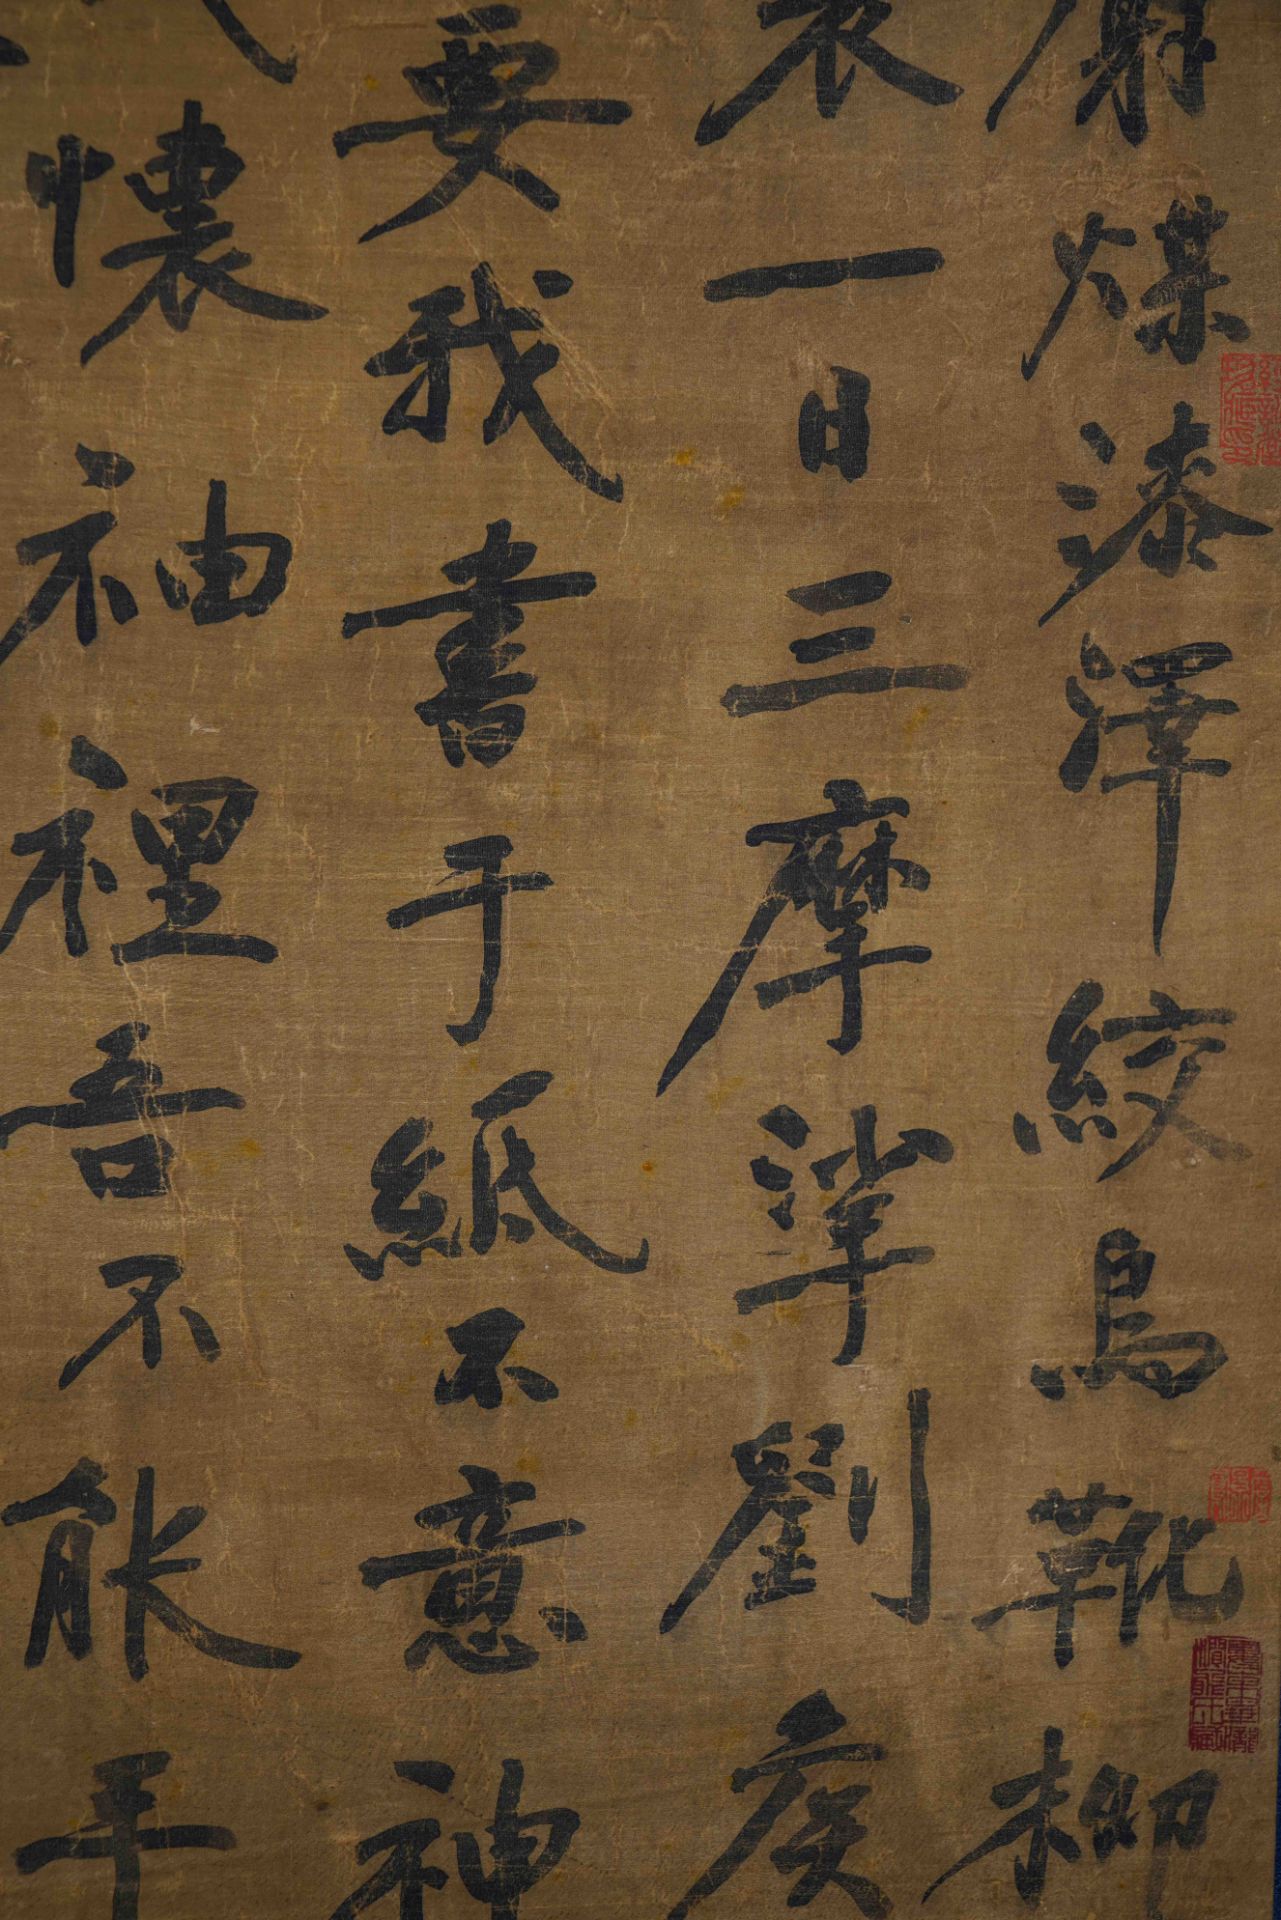 煤漆澤紋烏靴柳
裘一日三摩挲劉侯
要我書于紙不意神
懷袖裡吾不能平